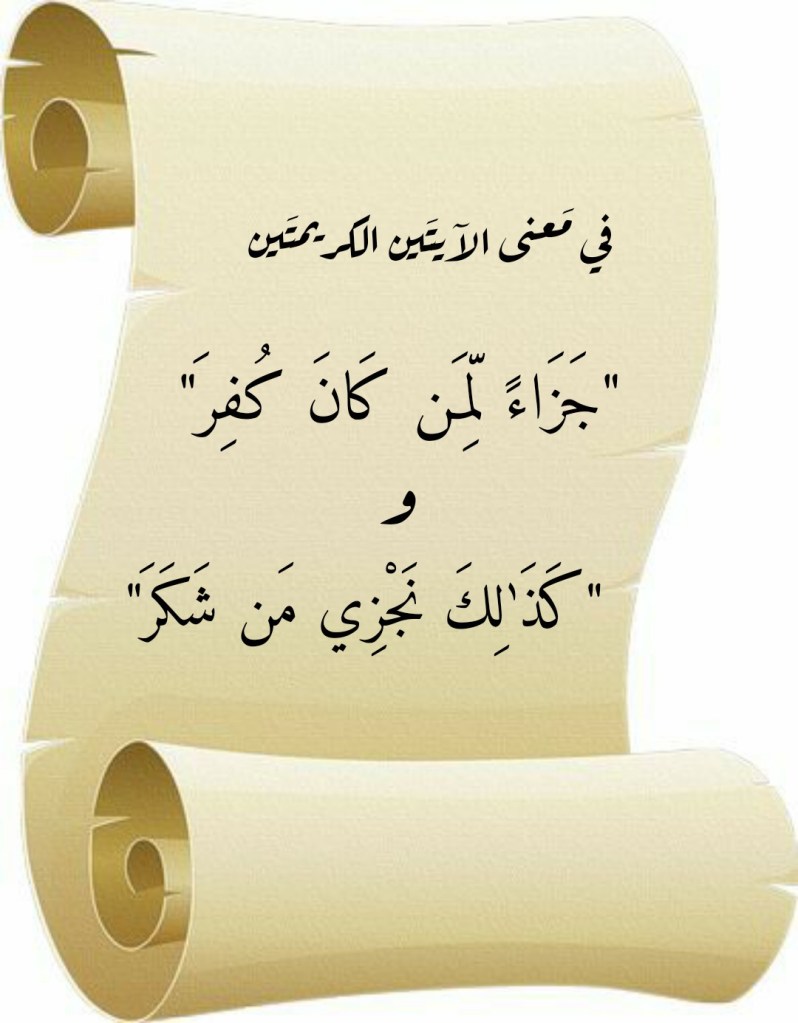 في مَعنى الآيتَين الكريمتَين
"جَزَاءً لِّمَن كَانَ كُفِرَ"
و
"كَذَٰلِكَ نَجْزِي مَن شَكَرَ"